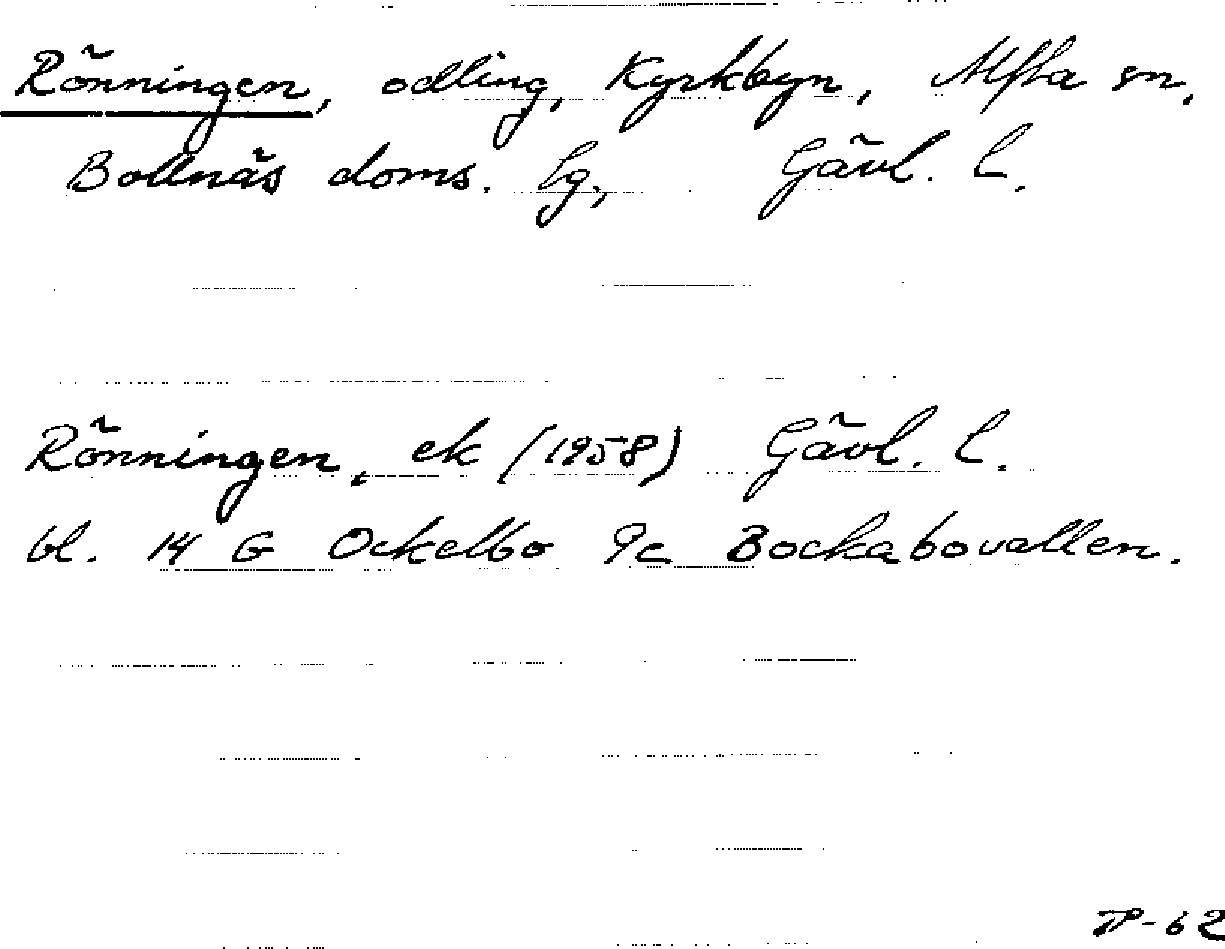 Rönningen, odling, Kyrkbyn, Alfta sn,
Bollnäs doms. lg, Gävl. l.
Rönningen, ek (1958) Gävl. l.
bl. 14 G Ockelbo 9c Bockabovallen.
TP-62